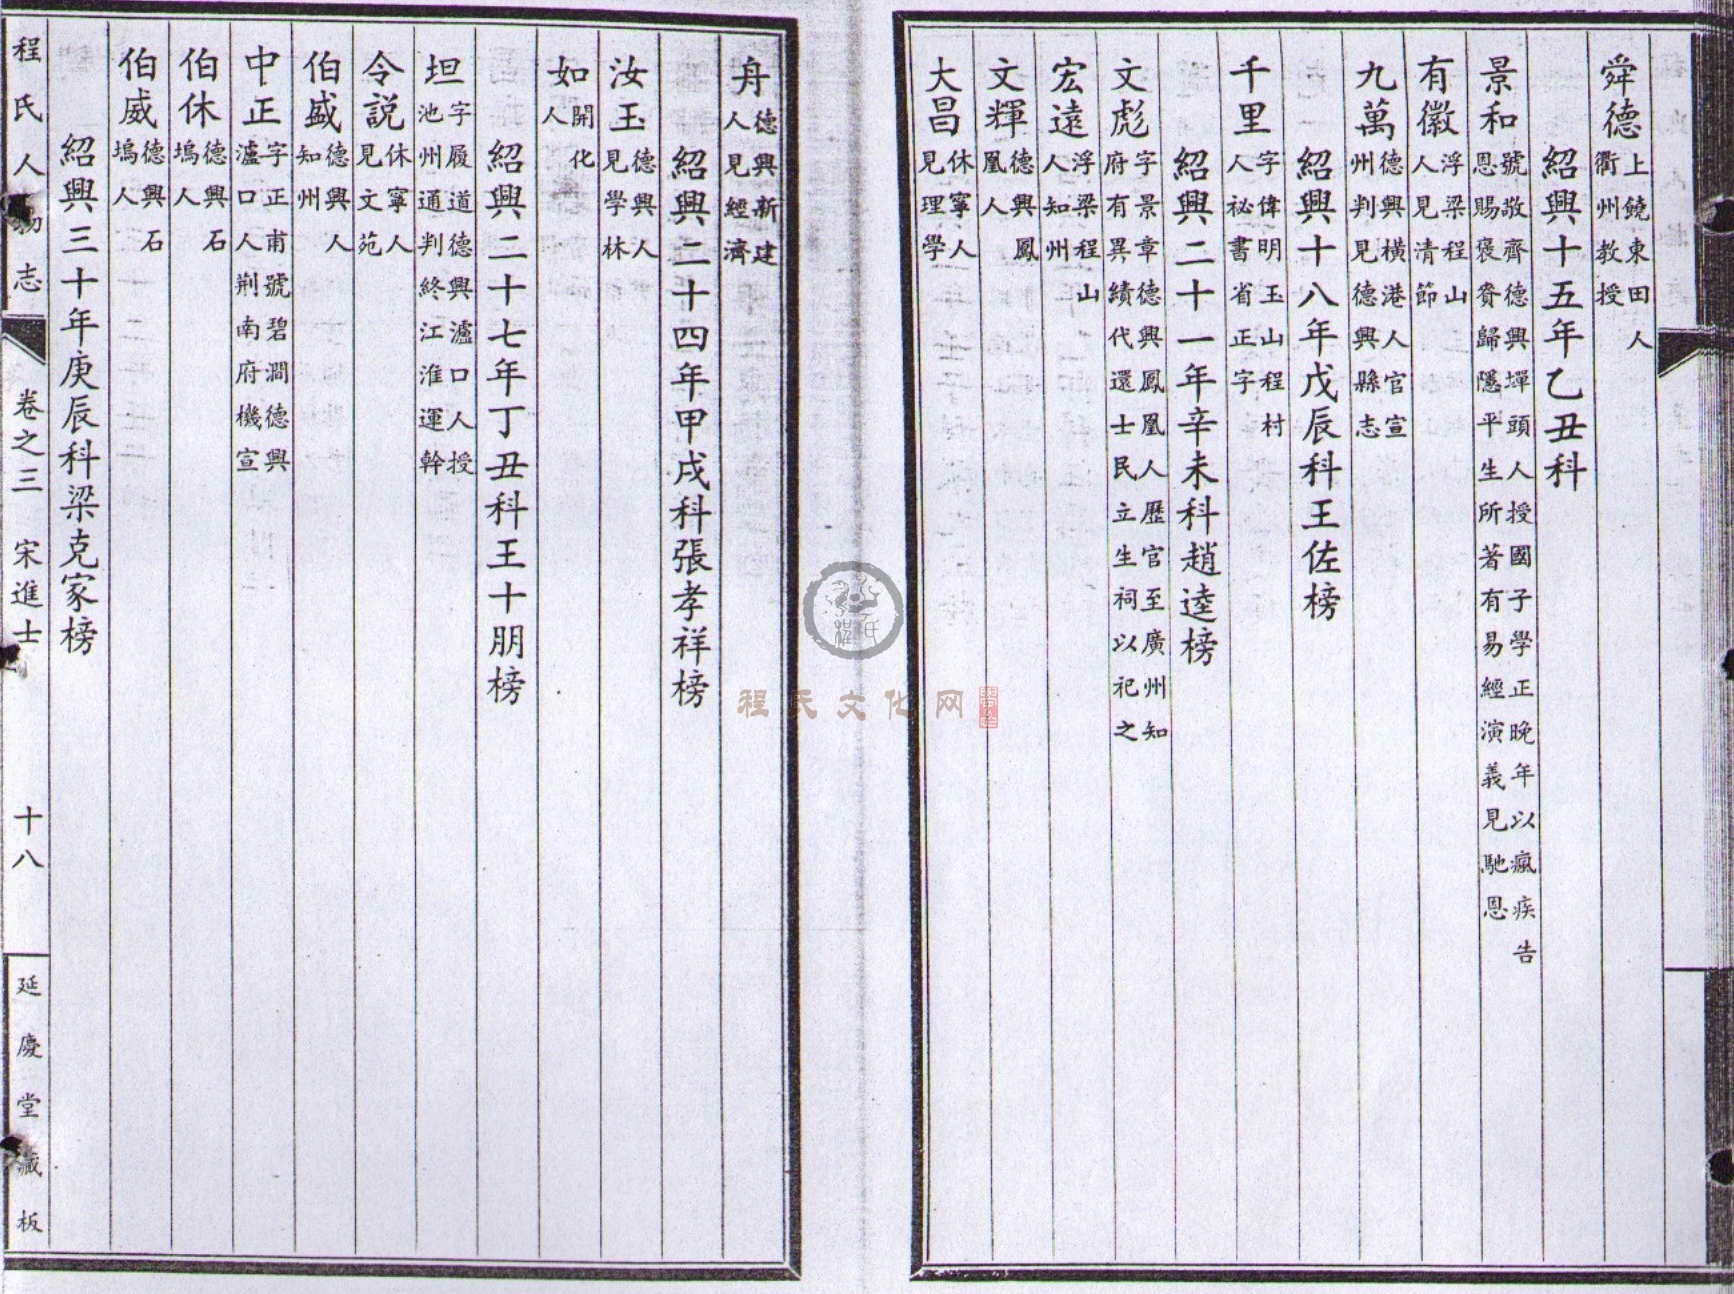 舜德上饒東田人衢州教授
紹興十五年乙丑科
景和號敬齊德興墠頭人授國子學正晚年以瘋疾告恩賜褒賚歸隱平生所著有易經演義見馳恩
有徽浮梁程山人見清節
九萬德興橫港人官宣州判見德興縣志
紹興十八年戊辰科王佐榜
千里字偉明玉山程村人祕書省正字
紹興二十一年辛未科趙逵榜
文彪字景章德興鳳凰人歷官至廣州知府有異績代還士民立生祠以祀之
宏遠浮梁程山人知州
文輝德興鳳凰人
大昌休寧人見理學
舟德興新建人見經濟
紹興二十四年甲戌科張孝祥榜
汝玉德興人見學林
如開化人
紹興二十七年丁丑科王十朋榜
坦字履道德興瀘口人授池州通判終江淮運幹
令說休寧人見文苑
伯盛德興人知州
中正字正甫號碧澗德興瀘口人荆南府機宣
伯休德興石塢人
伯威德興石塢人
紹興三十年庚辰科梁克家榜
程氏人物志 卷之三 宋進士 十八 延慶堂藏板
程氏文化网